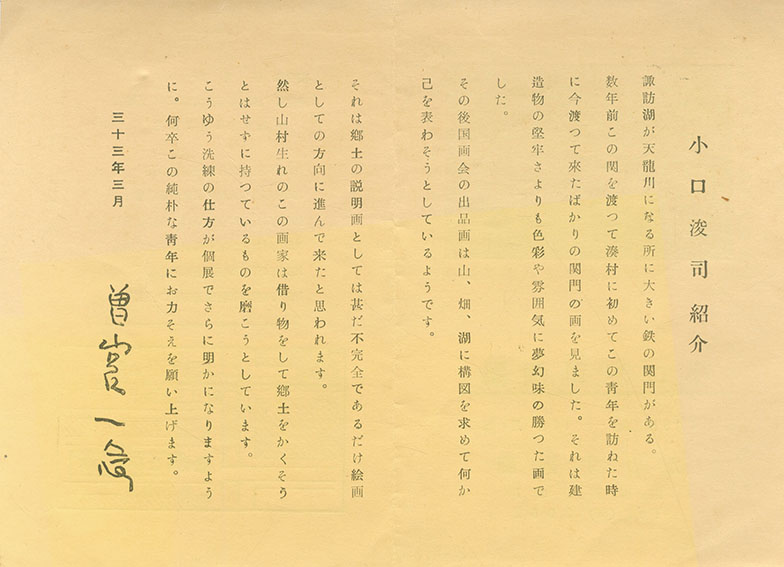 小口浚司紹介
諏訪湖が天龍川になる所に大きい鉄の関門がある。
数年前この関を渡つて湊村に初めてこの靑年を訪ねた時
に今渡つて來たばかりの関門の画を見ました。それは建
造物の堅牢さよりも色彩や雰囲気に夢幻味の勝つた画で
した。
その後国画会の出品画は山、畑、湖に構図を求めて何か
己を表わそうとしているようです。
それは郷土の説明画としては甚だ不完全であるだけ絵画
としての方向に進んで来たと思われます。
然し山村生れのこの画家は借り物をして郷土をかくそう
とはせずに持つているものを磨こうとしています。
こうゆう洗練の仕方が個展でさらに明かになりますよう
に。何卒この純朴な靑年にお力そえを願い上げます。
三十三年三月
曽宮一念